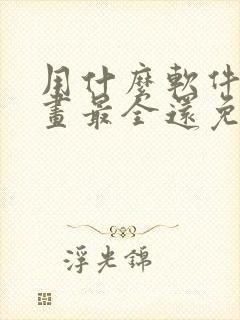 用什麼軟件
畫最全還免
浮光錦